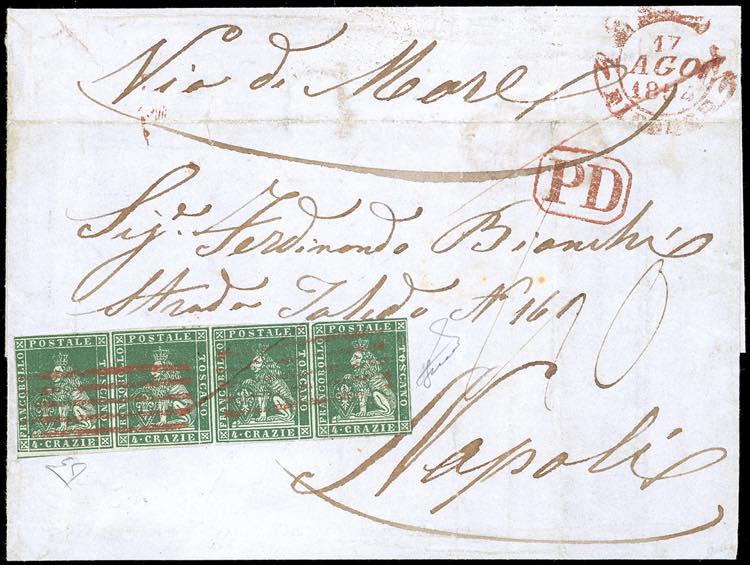 Via di Mare
17
AGO
185
FIRENZE
PD
Sigr. Ferdinando Bianchi
Strada Toledo N 161
Napoli
FRANCOBOLLO POSTALE TOSCANO 4·CRAZIE
FRANCOBOLLO POSTALE TOSCANO 4·CRAZIE
FRANCOBOLLO POSTALE TOSCANO 4·CRAZIE
FRANCOBOLLO POSTALE TOSCANO 4·CRAZIE